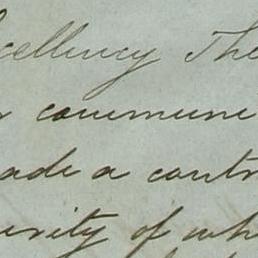 cellency The
commune
ade a contr
urity of wh